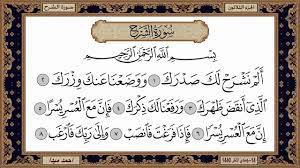 الجزء الثلاثون
سورة الشرح
سُورَةُ الشَّرْحِ
بِسْمِ اللَّهِ الرَّحْمَٰنِ الرَّحِيمِ
أَلَمْ نَشْرَحْ لَكَ صَدْرَكَ ١ وَوَضَعْنَا عَنكَ وِزْرَكَ ٢
الَّذِي أَنقَضَ ظَهْرَكَ ٣ وَرَفَعْنَا لَكَ ذِكْرَكَ ٤ فَإِنَّ مَعَ الْعُسْرِ يُسْرًا ٥
إِنَّ مَعَ الْعُسْرِ يُسْرًا ٦ فَإِذَا فَرَغْتَ فَانصَبْ ٧ وَإِلَىٰ رَبِّكَ فَارْغَب ٨
1440
أحمد